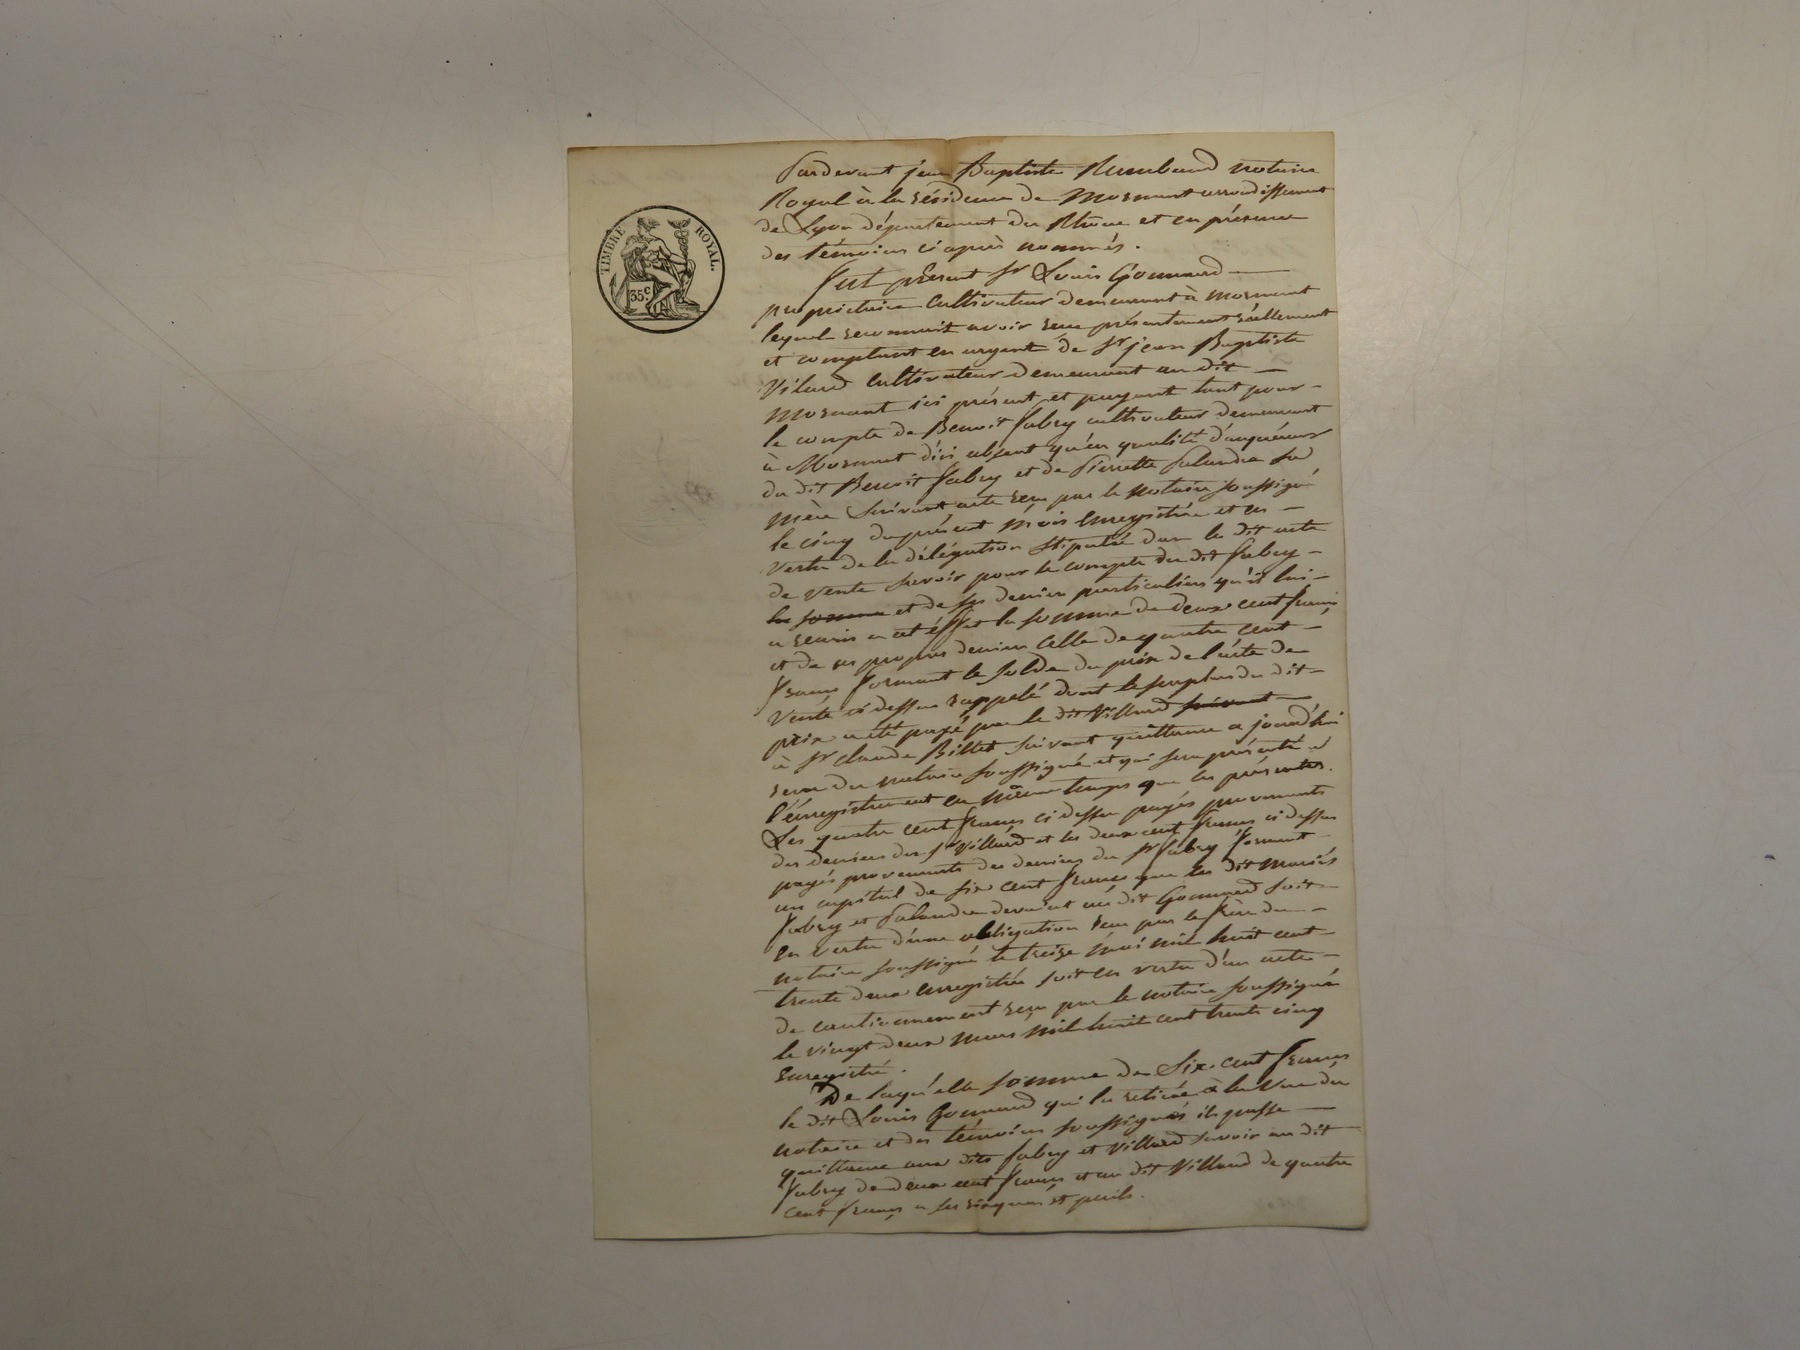 TIMBRE ROYAL.
35c.
Pardevant jean Baptiste Rambaud notaire
Royal à la résidence de Mornant arrondissement
de Lyon département du Rhône et en présence
des témoins ci après nommés.
fut présent Sr Louis Gonnard
propriétaire cultivateur demeurant à mornant
lequel reconnait avoir recu présentement réellement
et comptant en argent de Sr jean Baptiste
Vilard cultivateur demeurant au dit
Mornant ici présent et payant tant pour
le compte de Benoit fabry cultivateur demeurant
à Mornant d'ici absent qu'en qualité d'acquéreur
du dit Benoit fabry et de Pierrette Palandre sa
mère suivant acte recu par le notaire soussigné
le cinq du présent mois enregistrée et en
vertu de la délégation stipulée dans le dit acte
de vente savoir pour le compte du dit fabry
la somme et de ses deniers particuliers qu'il lui
a remis a cet éffet la somme de deux cent francs
et de ses propres deniers celle de quatre cent
francs formant le solde du prix de l'acte de
vente ci dessus rappelé dont le surplus du dit
prix a été payé par le dit Villard suivant
à Sr claude Billet suivant quittance a jourd'hui
recue du notaire soussigné et qui sera présenté a
l'énregistrement en même temps que les présentes.
Les quatre cent francs ci dessus payés provenants
des deniers du Sr Villard et les deux cent francs ci dessus
payés provenants des deniers du Sr fabry forment
un capital de six cent francs que les dit mariés
fabry et Palandre devaient au dit Gonnard soit
en vertu d'une obligation recu par le frère du
notaire soussigné le treize mai mil huit cent
trente deux enregistrée soit en vertu d'un acte
de cautionnement recu par le notaire soussigné
le vingt deux mars mil huit cent trente cinq
enregistré.
De laquélle somme de Six cent francs
le dit Louis Gonnard qui la retirée à la vue du
notaire et des témoins soussignés ils passe
quittance aux dits fabry et Villard savoir au dit
fabry de deux cent francs et au dit Villard de quatre
cent francs a ses risques et perils.